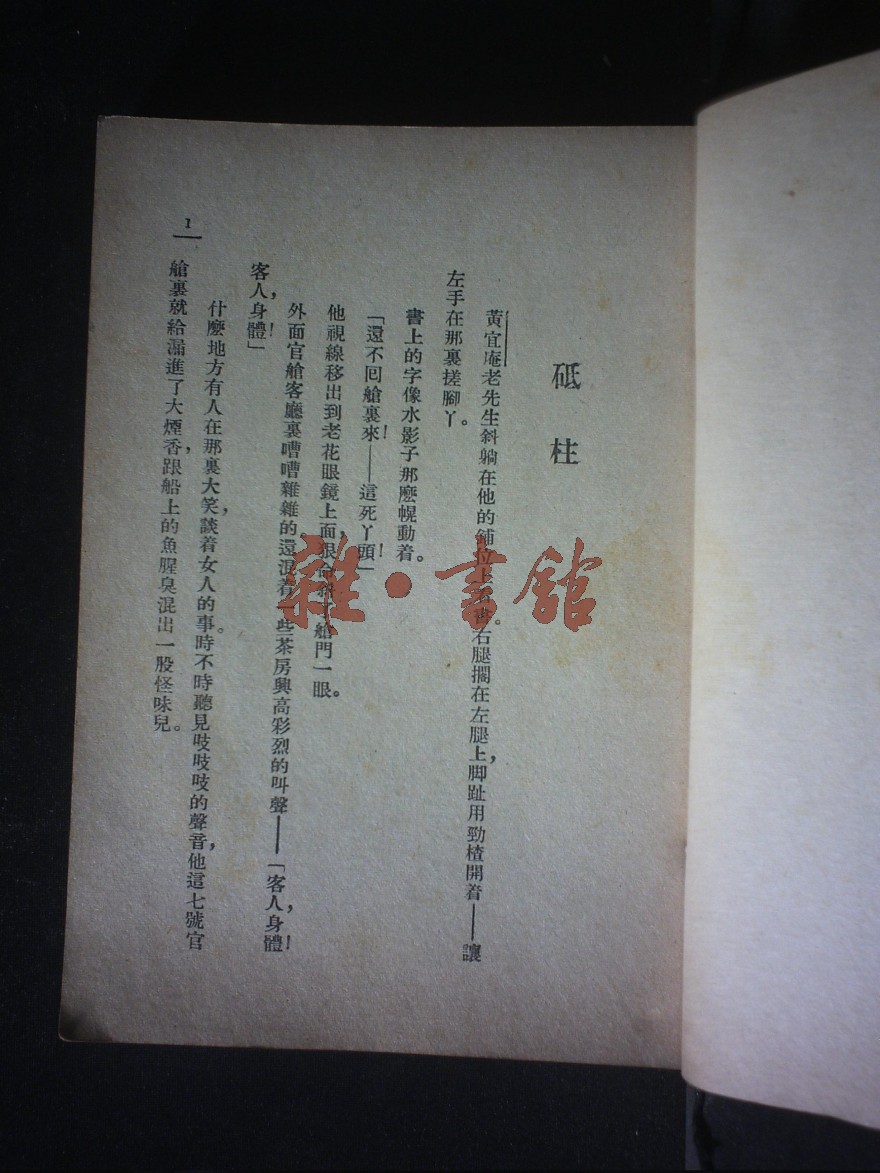 砥柱
黃宜庵老先生斜躺在他的鋪位上看書。右腿擱在左腿上，脚趾用勁楂開着——讓
左手在那裏搓腳丫。
書上的字像水影子那麽幌動着。
「還不囘艙裏來！——這死丫頭！」
他視線移出到老花眼鏡上面，狠命斜了艙門一眼。
外面官艙客廳裏嘈嘈雜雜的。還混着一些茶房興高彩烈的叫聲——「客人，身體！
客人，身體！」
什麽地方有人在那裏大笑，談着女人的事。時不時聽見吱吱吱的聲音，他這七號官
艙裏就給漏進了大煙香，跟船上的魚腥臭混出一股怪味兒。
1
雜·書館